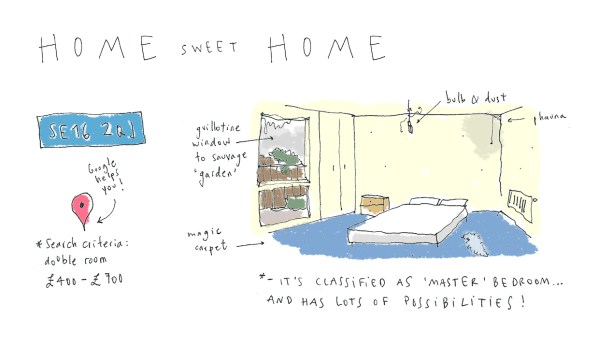 HOME SWEET HOME
SE16 2RJ
Google
helps
you!
*Search criteria:
double room
£400-£700
guillotine
window
to sauvage
'garden'
bulb & dust
phauna
magic
carpet
*- IT'S CLASSIFIED AS 'MASTER' BEDROOM...
AND HAS LOTS OF POSSIBILITIES!